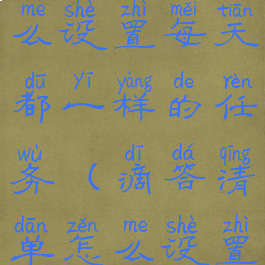 me shè zhì měi tiān
么设置每天
dū yī yàng de rèn
都一样的任
wù dī dá qīng
务（滴答清
dān zěn me shè zhì
单怎么设置